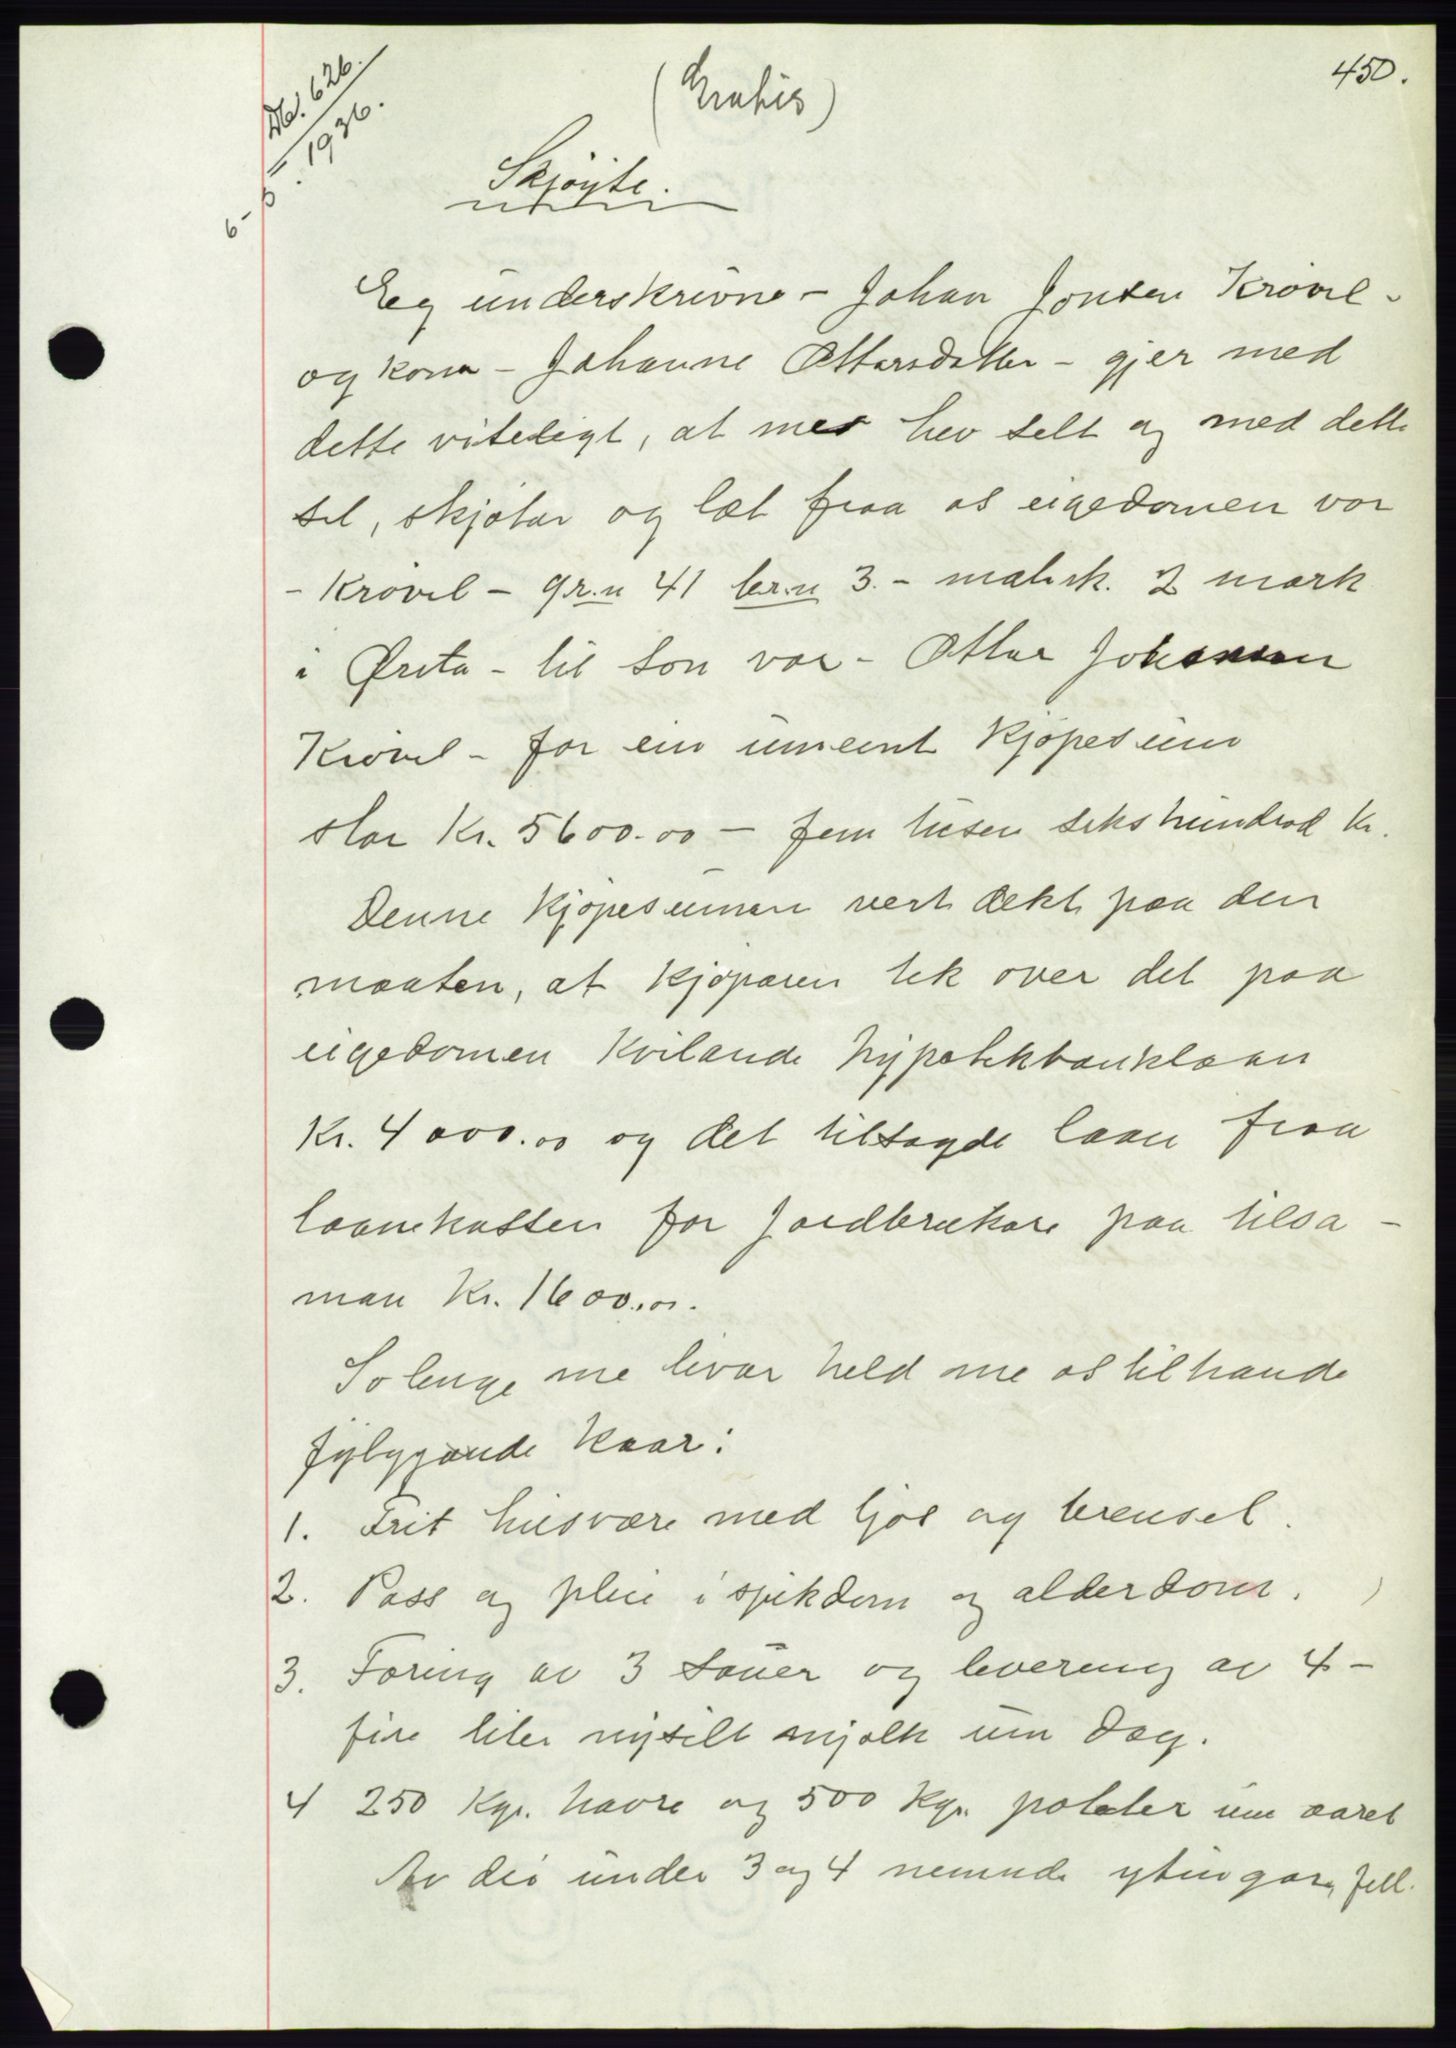 450.
Db. 626.
6-5. 1936.
(Gratis)
Skjøyte.
Eg underskrivne - Johan Jonsen Krøvel -
og kona - Johanne Ottarsdatter - gjer med
dette viteligt, at me hev selt og med dette
sel, skjøtar og læt fraa os eigedomen vor
- Krøvel - gr.n 41 br.n 3. - matrsk. 2 mark
i Ørsta - til son vor - Ottar Johansen
Krøvel - for ein umeent kjøpesum
stor Kr. 5600.00 - fem tusen sekshundrad kr.
Denne kjøpesumen vert dekt paa den
maaten, at kjøparen tek over det paa
eigedomen kvilande hypotekbanklaan
Kr. 4000.00 og det tilsagde laan fraa
laanekassen for Jordbrukare paa tilsa-
man Kr. 1600.00.
So lenge me livar held me os tilhande
fylgjande kaar:
1. Frit husvære med ljos og brensel.
2. Pass og pleie i sjukdom og alderdom.
3. Foring av 3 sauer og levering av 4 -
fire liter nysilt mjølk um dag.
4 250 kgr. havre og 500 kgr. poteter um aaret
Av dei under 3 og 4 nemnde ytingar, fell